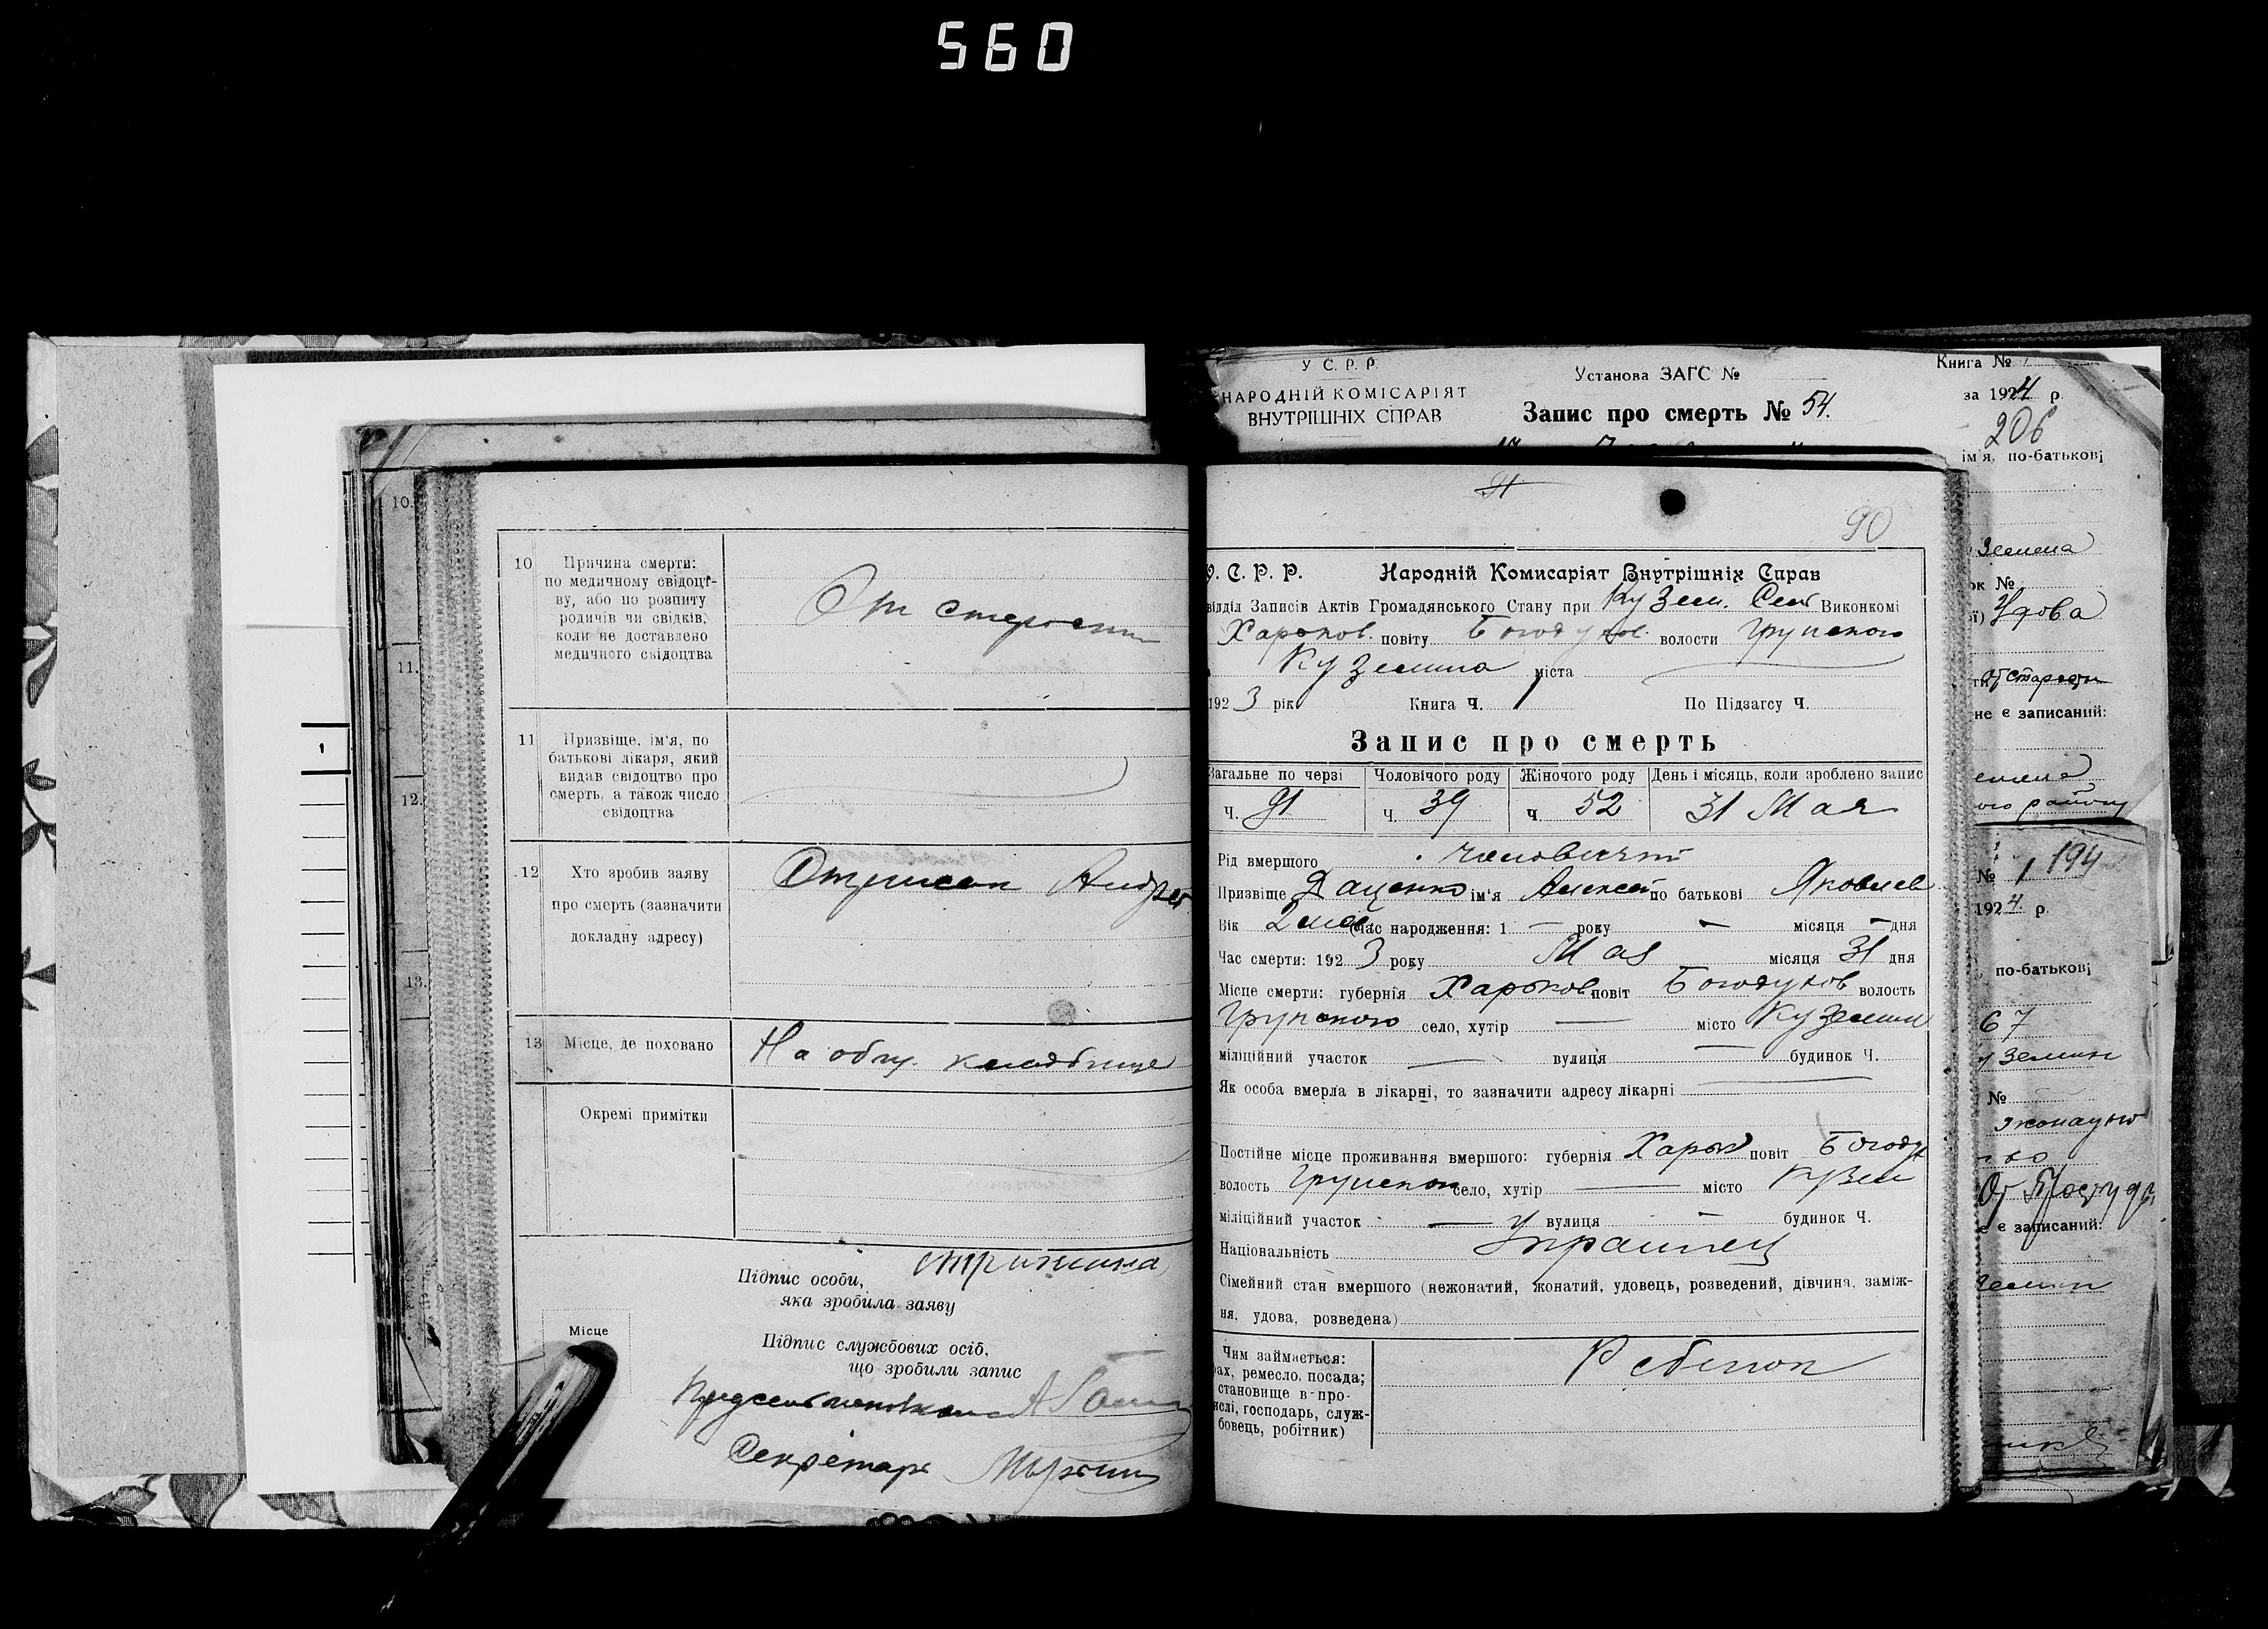 560
10.
11.
12.
13.
10 Причина смерти:
по медичному свідоцт-
ву, або по розпиту
родичів чи свідків,
коли не доставлено
медичного свідоцтва
От старости
11 Призвіще, ім'я, по
батькові лікаря, який
видав свідоцтво про
смерть, а також число
свідоцтва
12 Хто зробив заяву
про смерть (зазначити
докладну адресу)
Андрей
13 Місце, де поховано
На общ. кладбище
Окремі примітки
Підпис особи,
яка зробила заяву
Підпис службових осіб,
що зробили запис
Місце
Секретарь
У С. Р. Р.
НАРОДНІЙ КОМІСАРІЯТ
ВНУТРІШНІХ СПРАВ
Установа ЗАГС №
Запис про смерть № 54.
Книга №
за 1924 р.
206
ім'я, по-батькові
91
90
У. С. Р. Р. Народній Комисаріят Внутрішніх Справ
відділ Записів Актів Громадянського Стану при Куземи. Сель Виконкомі
Харьков. повіту Богодухов. волости Грунского
Куземина міста
1923 рік Книга Ч. 1 По Підзагсу Ч.
Запис про смерть
Загальне по черзі Чоловічого роду Жіночого роду День і місяць, коли зроблено запис
Ч. 91 Ч. 39 Ч. 52 31 Мая
Рід вмершого
Призвіще Даценко ім'я Алексей по батькові Яковлев
Вік 2 мес (Час народження: 1 — року — місяця — дня
Час смерти: 1923 року Мая місяця 31 дня
Місце смерти: губернія Харьков повіт Богодухов волость
Грунского село, хутір — місто Куземин
міліційний участок — вулиця — будинок Ч.
Як особа вмерла в лікарні, то зазначити адресу лікарні
Постійне місце проживання вмершого: губернія Харьк повіт Богоду
волость Грунског село, хутір — місто Кузем
міліційний участок — вулиця — будинок Ч.
Національність Украинец
Сімейний стан вмершого (нежонатий, жонатий, удовець, розведений, дівчина, заміж-
ня, удова, розведена)
Чим займається:
ах, ремесло, посада;
становище в про-
ислі, господарь, служ-
бовець, робітник)
Ребенок
земена
ок №
Удова
от старости
не є записаний:
ого району
№ 1 194
1924. р.
по-батькові
67
уземин
№
От простуды
є записаний: